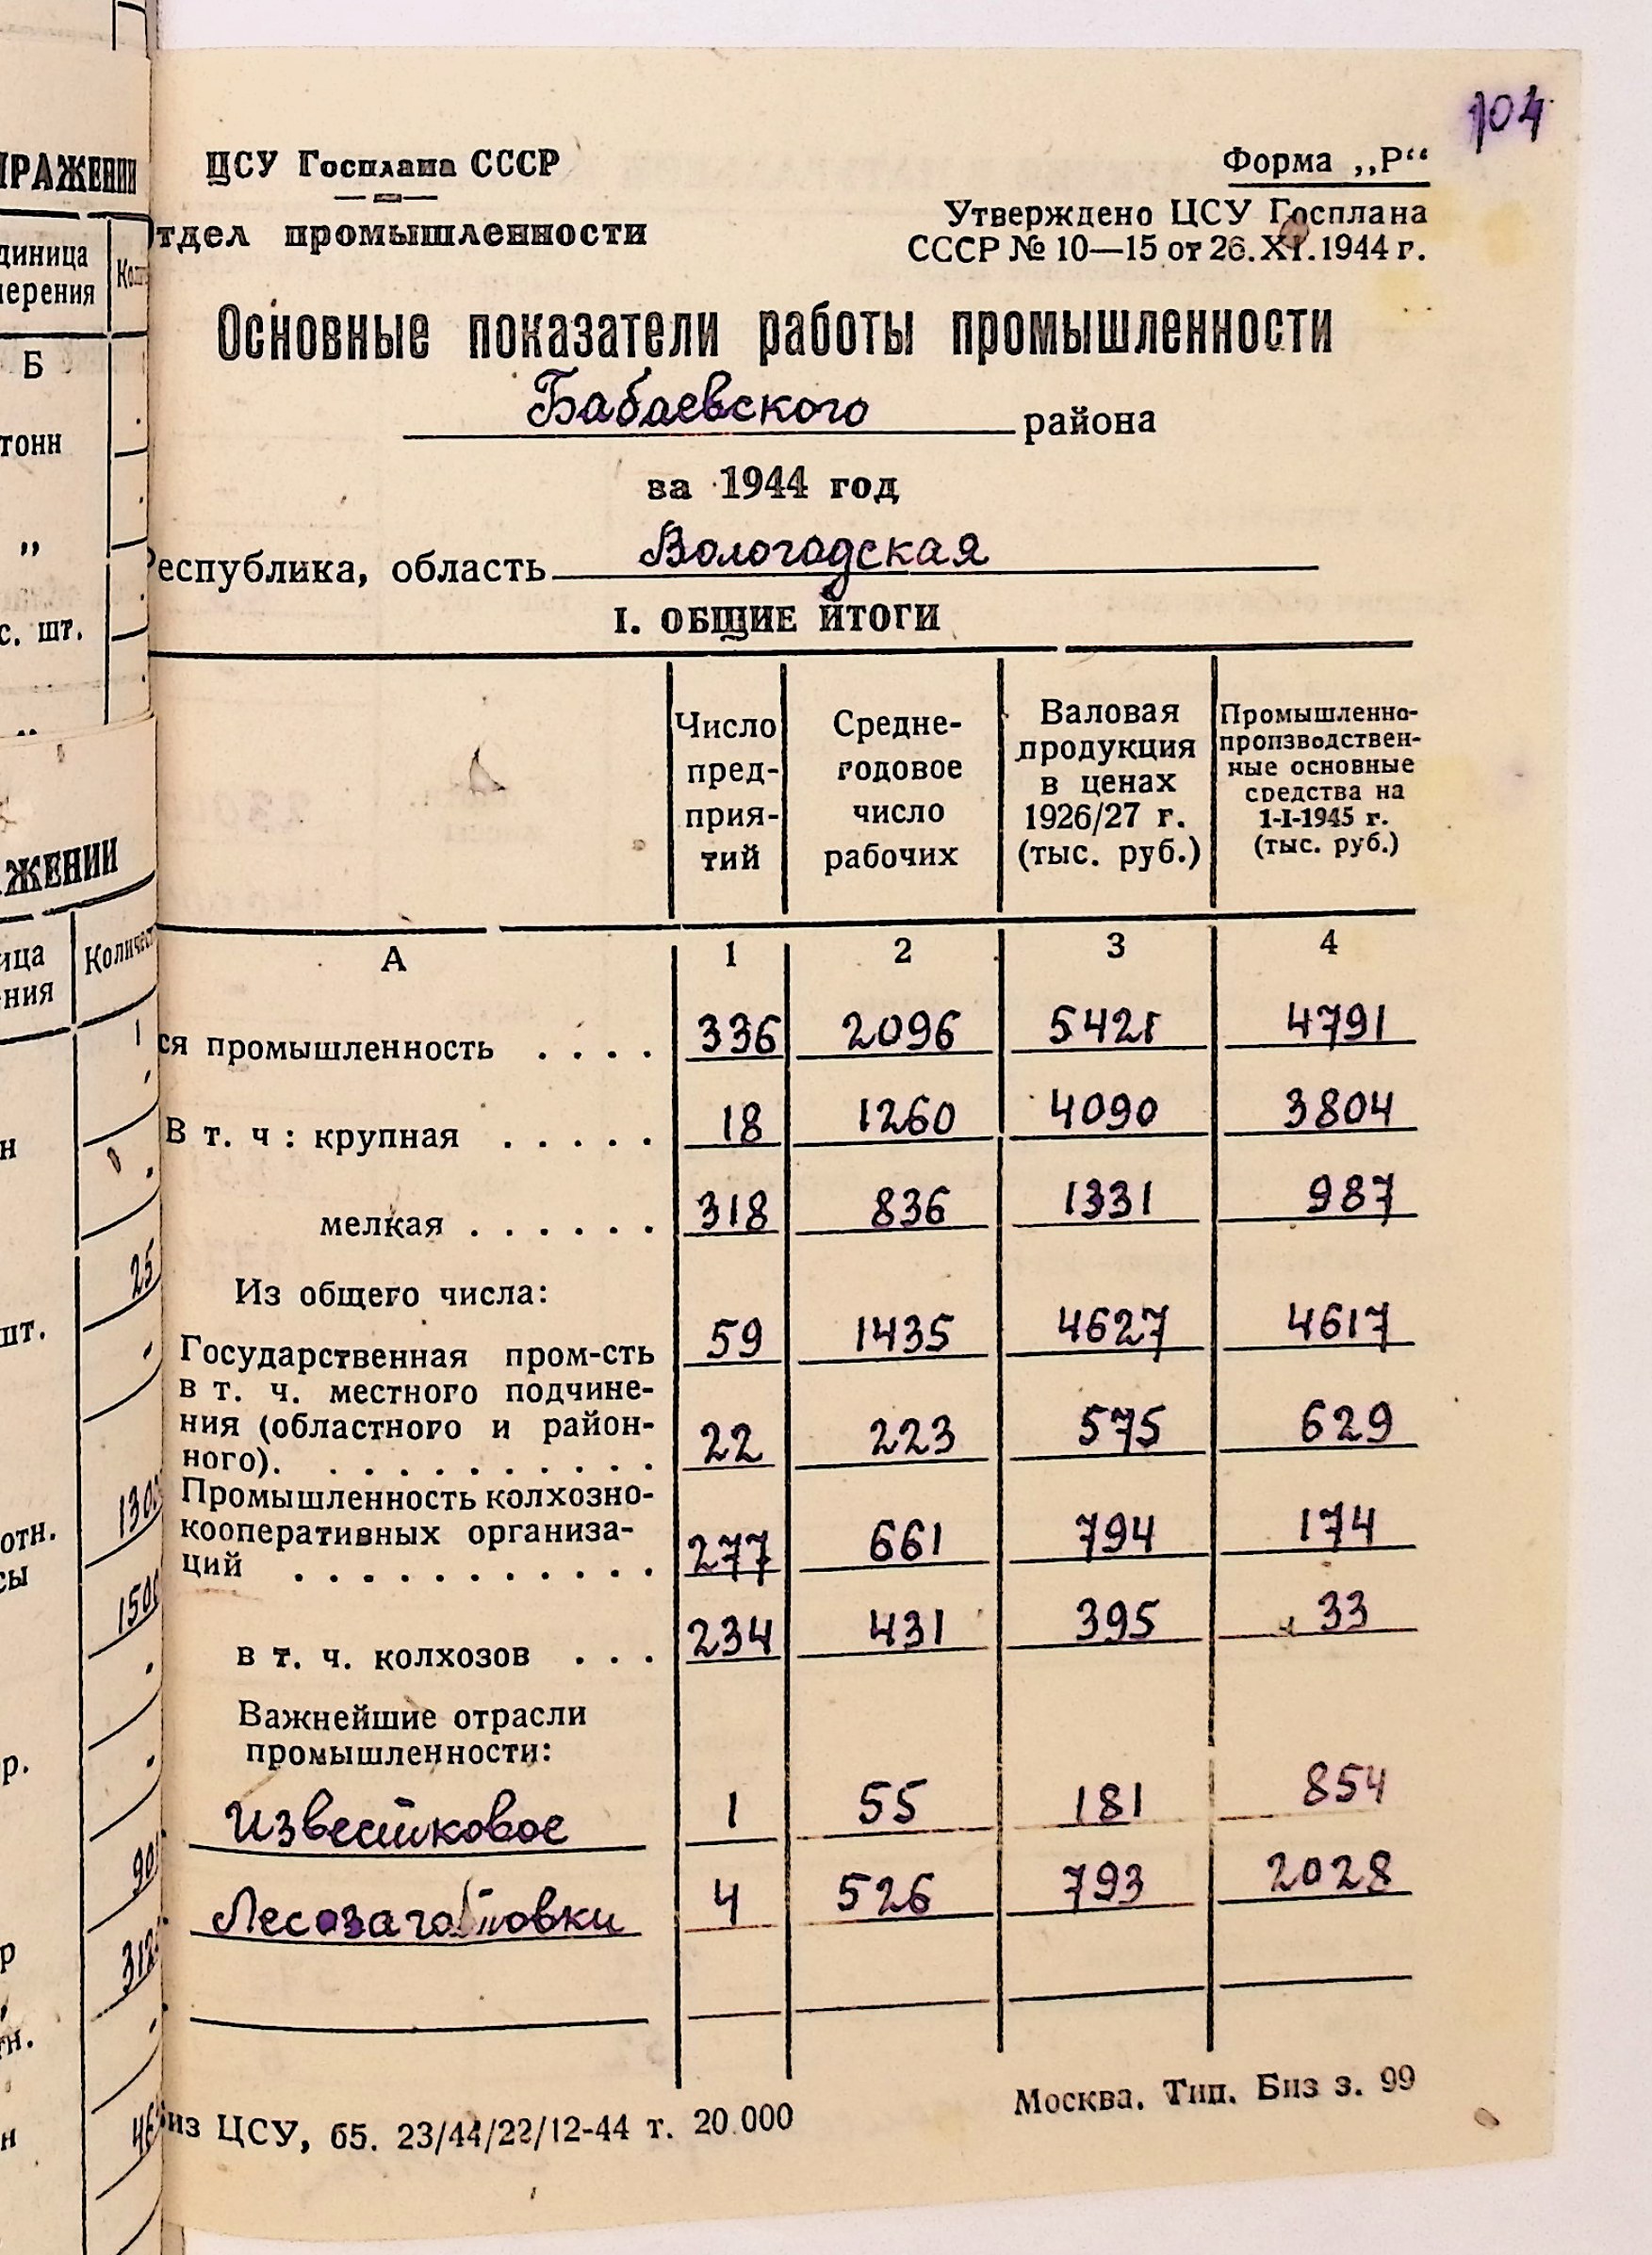 104
ЦСУ Госплана СССР
Форма „Р“
Отдел промышленности
Утверждено ЦСУ Госплана
СССР № 10—15 от 26.XI.1944 г.
Основные показатели работы промышленности
Бабаевского района
за 1944 год
Республика, область Вологодская
I. ОБЩИЕ ИТОГИ
Число предприятий
Средне-годовое число рабочих
Валовая продукция в ценах 1926/27 г. (тыс. руб.)
Промышленно-производственные основные средства на 1-I-1945 г. (тыс. руб.)
А 1 2 3 4
ся промышленность . . . . 336 2096 5421 4791
В т. ч : крупная . . . . . 18 1260 4090 3804
мелкая . . . . . . 318 836 1331 987
Из общего числа:
Государственная пром-сть 59 1435 4627 4617
в т. ч. местного подчине-
ния (областного и район-
ного). . . . . . . . . . . 22 223 575 629
Промышленность колхозно-
кооперативных организа-
ций . . . . . . . . . . . . 277 661 794 174
в т. ч. колхозов . . . 234 431 395 33
Важнейшие отрасли
промышленности:
Известковое 1 55 181 854
Лесозаготовки 4 526 793 2028
из ЦСУ, б5. 23/44/22/12-44 т. 20.000
Москва. Тип. Биз з. 99
РАЖЕНИИ
диница
мерения
Б
тонн
„
с. шт.
АЖЕНИИ
ица
ния
Количест
н
25
шт.
отн.
сы
р.
р
тн.
н